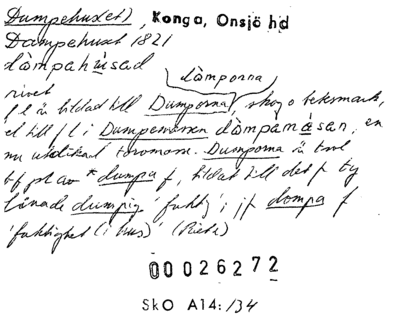 Dumpehuset), Konga, Onsjö hd
Dampehuset 1821
dàmpahùsad
dàmporna
rivet
f l ä bildad till Dumporna, skog o beksmark,
el till f l i Dumpemossen dàmpamåsan, en
nu utdikad torvmosse. Dumporna ä trol
bf pl av *dumpa f, bildat till det f ty
lånade dumpig 'fuktig'; jf dompa f
'fuktighet (i hus)' (Rietz)
00026272
SkO A14:134